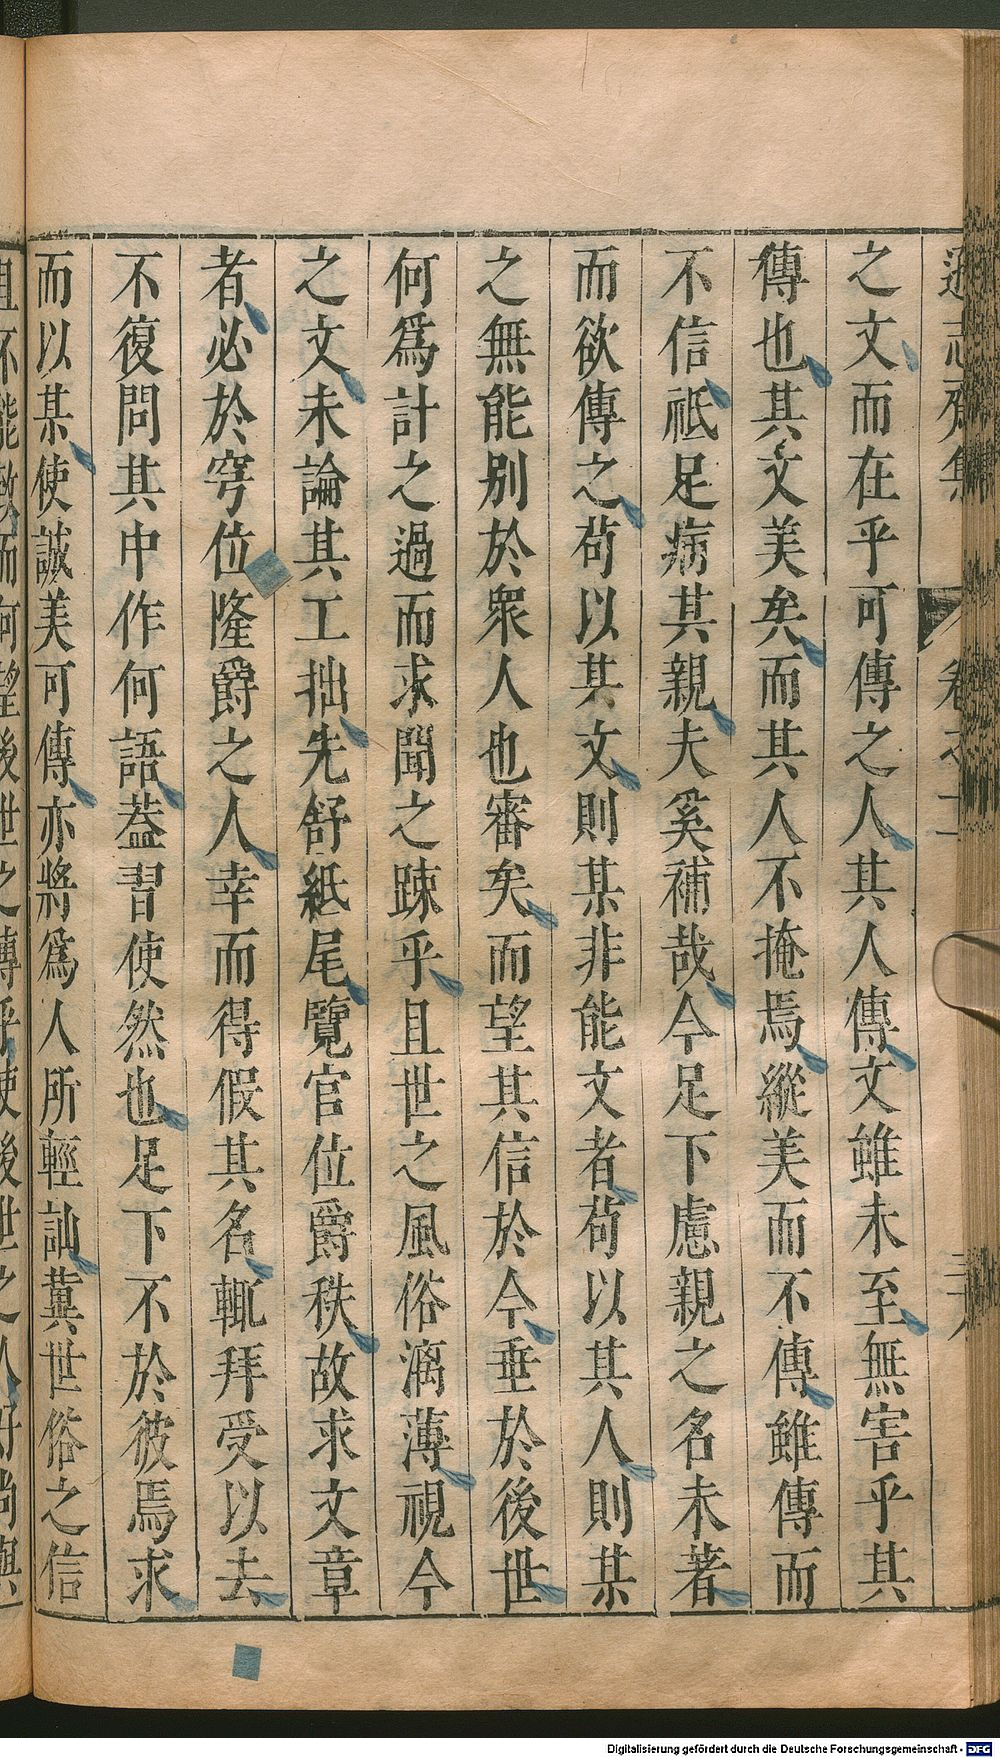 之文而在乎可傳之人其人傳文雖未至無害乎其
傳也其文美矣而其人不掩焉縱美而不傳雖傳而
不信祗足病其親夫奚補哉今足下慮親之名未著
而欲傳之苟以其文則某非能文者苟以其人則某
之無能別於衆人也審矣而望其信於今垂於後世
何爲計之過而求聞之踈乎且世之風俗漓薄視今
之文未論其工拙先舒紙尾覽官位爵秩故求文章
者必於穹位隆爵之人幸而得假其名輒拜受以去
不復問其中作何語葢習使然也足下不於彼焉求
而以某使誠美可傳亦將爲人所輕訕冀世俗之信
Digitalisierung gefördert durch die Deutsche Forschungsgemeinschaft - DFG